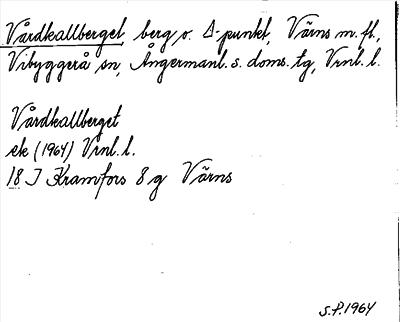 Vårdkallberget, berg o. Δ-punkt, Värns m.fl.,
Vibyggerå sn, Ångermanl. s. doms. tg, Vrnl. l.
Vårdkallberget
ek (1964) Vrnl. l.
18 I Kramfors 8 g Värns
S.P. 1964